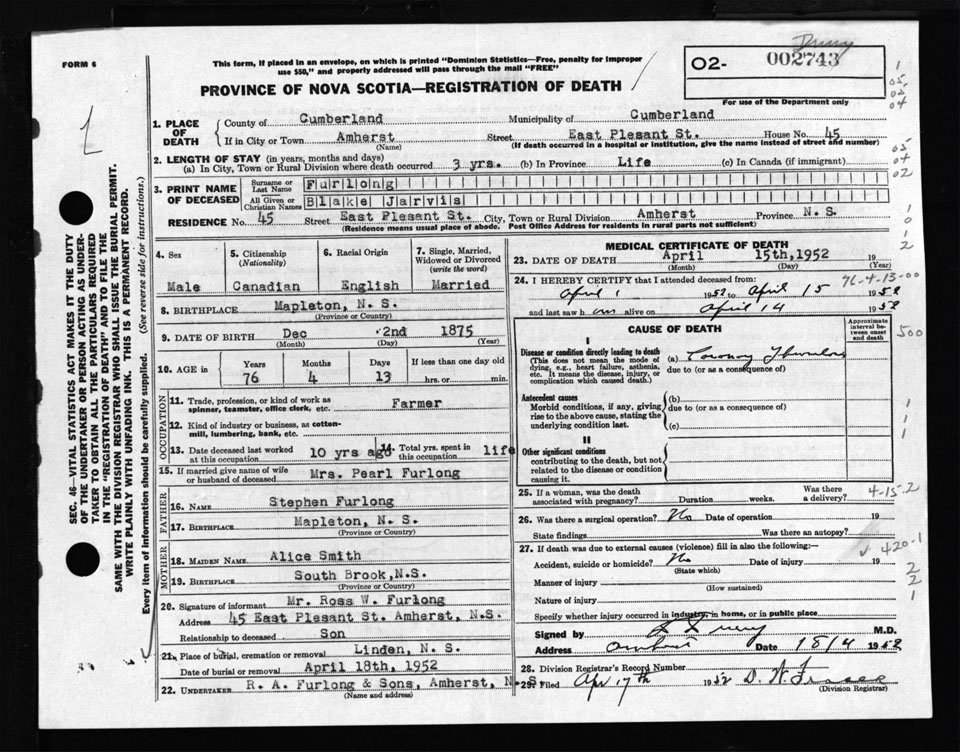 FORM 6
This form, if placed in an envelope, on which is printed "Dominion Statistics—Free, penalty for improper
use $50," and properly addressed will pass through the mail "FREE"
02- 002743
For use of the Department only
PROVINCE OF NOVA SCOTIA—REGISTRATION OF DEATH
SEC. 46—VITAL STATISTICS ACT MAKES IT THE DUTY
OF THE UNDERTAKER OR PERSON ACTING AS UNDER-
TAKER TO OBTAIN ALL THE PARTICULARS REQUIRED
IN THE "REGISTRATION OF DEATH" AND TO FILE THE
SAME WITH THE DIVISION REGISTRAR WHO SHALL ISSUE THE BURIAL PERMIT.
WRITE PLAINLY WITH UNFADING INK. THIS IS A PERMANENT RECORD.
Every item of Information should be carefully supplied. (See reverse side for instructions.)
1. PLACE OF DEATH
County of Cumberland Municipality of Cumberland
If in City or Town Amherst Street East Plesant St. House No. 45
(Name) (If death occurred in a hospital or institution, give the name instead of street and number)
2. LENGTH OF STAY (in years, months and days)
(a) In City, Town or Rural Division where death occurred 3 yrs. (b) In Province Life (c) In Canada (if immigrant)
3. PRINT NAME OF DECEASED
Surname or Last Name Furlong
All Given or Christian Names Blake Jarvis
RESIDENCE No. 45 Street East Plesant St. City, Town or Rural Division Amherst Province N. S.
(Residence means usual place of abode. Post Office Address for residents in rural parts not sufficient)
4. Sex
Male
5. Citizenship (Nationality)
Canadian
6. Racial Origin
English
7. Single, Married, Widowed or Divorced (write the word)
Married
8. BIRTHPLACE Mapleton, N. S.
(Province or Country)
9. DATE OF BIRTH Dec 2nd 1875
(Month) (Day) (Year)
10. AGE in Years Months Days If less than one day old
76 4 13 hrs. or min.
OCCUPATION
11. Trade, profession, or kind of work as
spinner, teamster, office clerk, etc. Farmer
12. Kind of industry or business, as cotton-
mill, lumbering, bank, etc.
13. Date deceased last worked at this occupation 10 yrs ago
14. Total yrs. spent in this occupation life
15. If married give name of wife
or husband of deceased Mrs. Pearl Furlong
FATHER
16. NAME Stephen Furlong
17. BIRTHPLACE Mapleton, N. S.
(Province or Country)
MOTHER
18. MAIDEN NAME Alice Smith
19. BIRTHPLACE South Brook,N.S.
(Province or Country)
20. Signature of informant Mr. Ross W. Furlong
Address 45 East Plesant St. Amherst, N.S.
Relationship to deceased Son
21. Place of burial, cremation or removal Linden, N. S.
Date of burial or removal April 18th, 1952
22. UNDERTAKER R. A. Furlong & Sons, Amherst, N.S.
(Name and address)
MEDICAL CERTIFICATE OF DEATH
23. DATE OF DEATH April 15th,1952 19
(Month) (Day) (Year)
24. I HEREBY CERTIFY that I attended deceased from: 76-4-13-00
April 1 1952 to April 15 1952
and last saw him alive on April 14 1952
CAUSE OF DEATH
Approximate interval between onset and death
I
Disease or condition directly leading to death
(This does not mean the mode of
dying, e.g., heart failure, asthenia,
etc. It means the disease, injury, or
complication which caused death.)
(a) Coronary Thrombosis
due to (or as a consequence of)
Antecedent causes
Morbid conditions, if any, giving
rise to the above cause, stating the
underlying condition last.
(b)
due to (or as a consequence of)
(c)
II
Other significant conditions
contributing to the death, but not
related to the disease or condition
causing it.
25. If a woman, was the death
associated with pregnancy? Duration weeks. Was there a delivery? 4-15-2
26. Was there a surgical operation? No Date of operation 19
State findings Was there an autopsy?
27. If death was due to external causes (violence) fill in also the following:— 420-1
Accident, suicide or homicide? No Date of injury 19
(State which)
Manner of injury
(How sustained)
Nature of injury
Specify whether injury occurred in industry, in home, or in public place
Signed by M.D.
Address Amherst Date 18/4 1952
28. Division Registrar's Record Number
29. Filed Apr 17th 1952 D. W. Fraser
(Division Registrar)